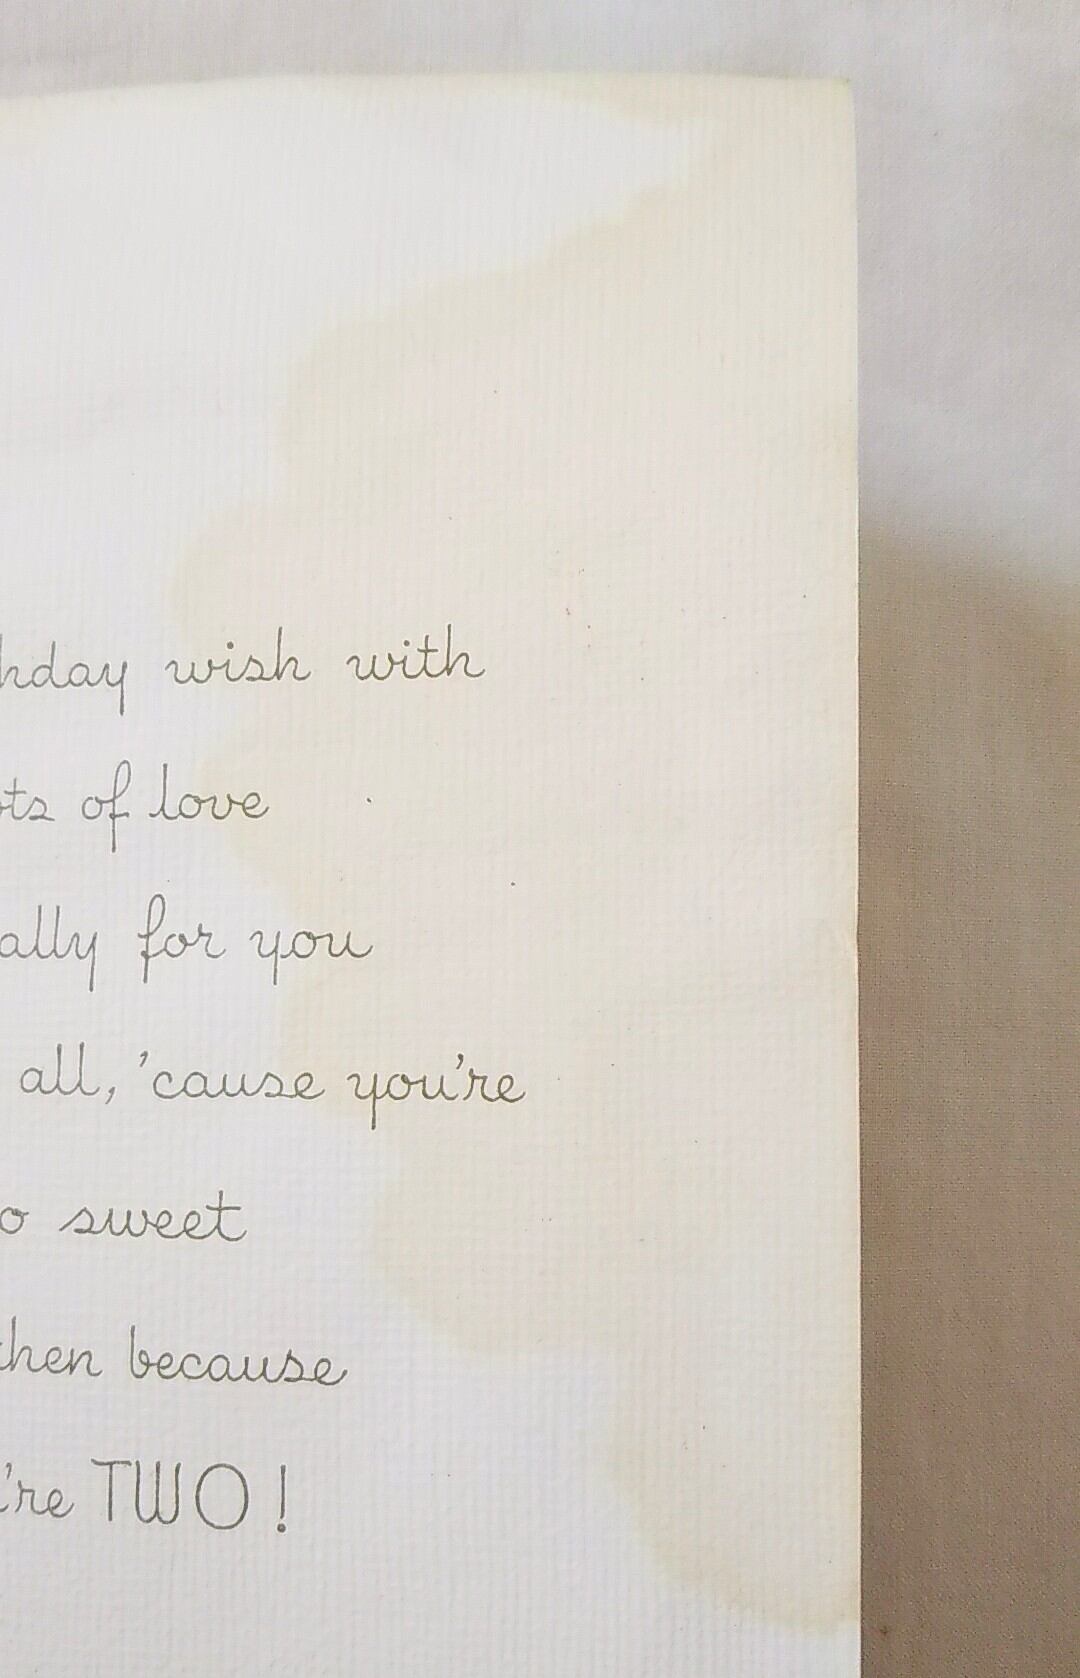 hday wish with
ots of love
ally for you
all, 'cause you're
o sweet
then because
're TWO!